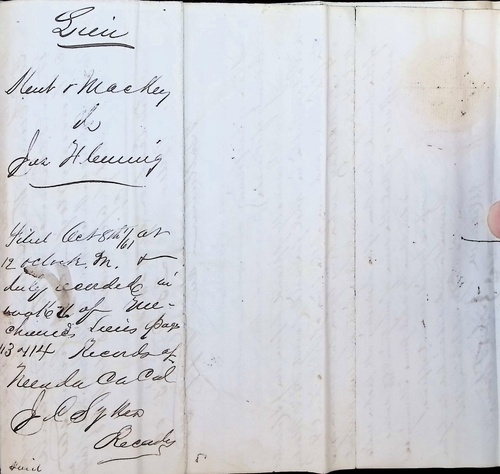 Lien
Kent & Mackey
vs
Jas Fleming
Filed Oct 8th /61 at
12 oclock M. &
duly recorded in
book of Me-
chanics Liens page
13 & 14 Records of
Nevada Co Cal
J C Sykes
Recorder